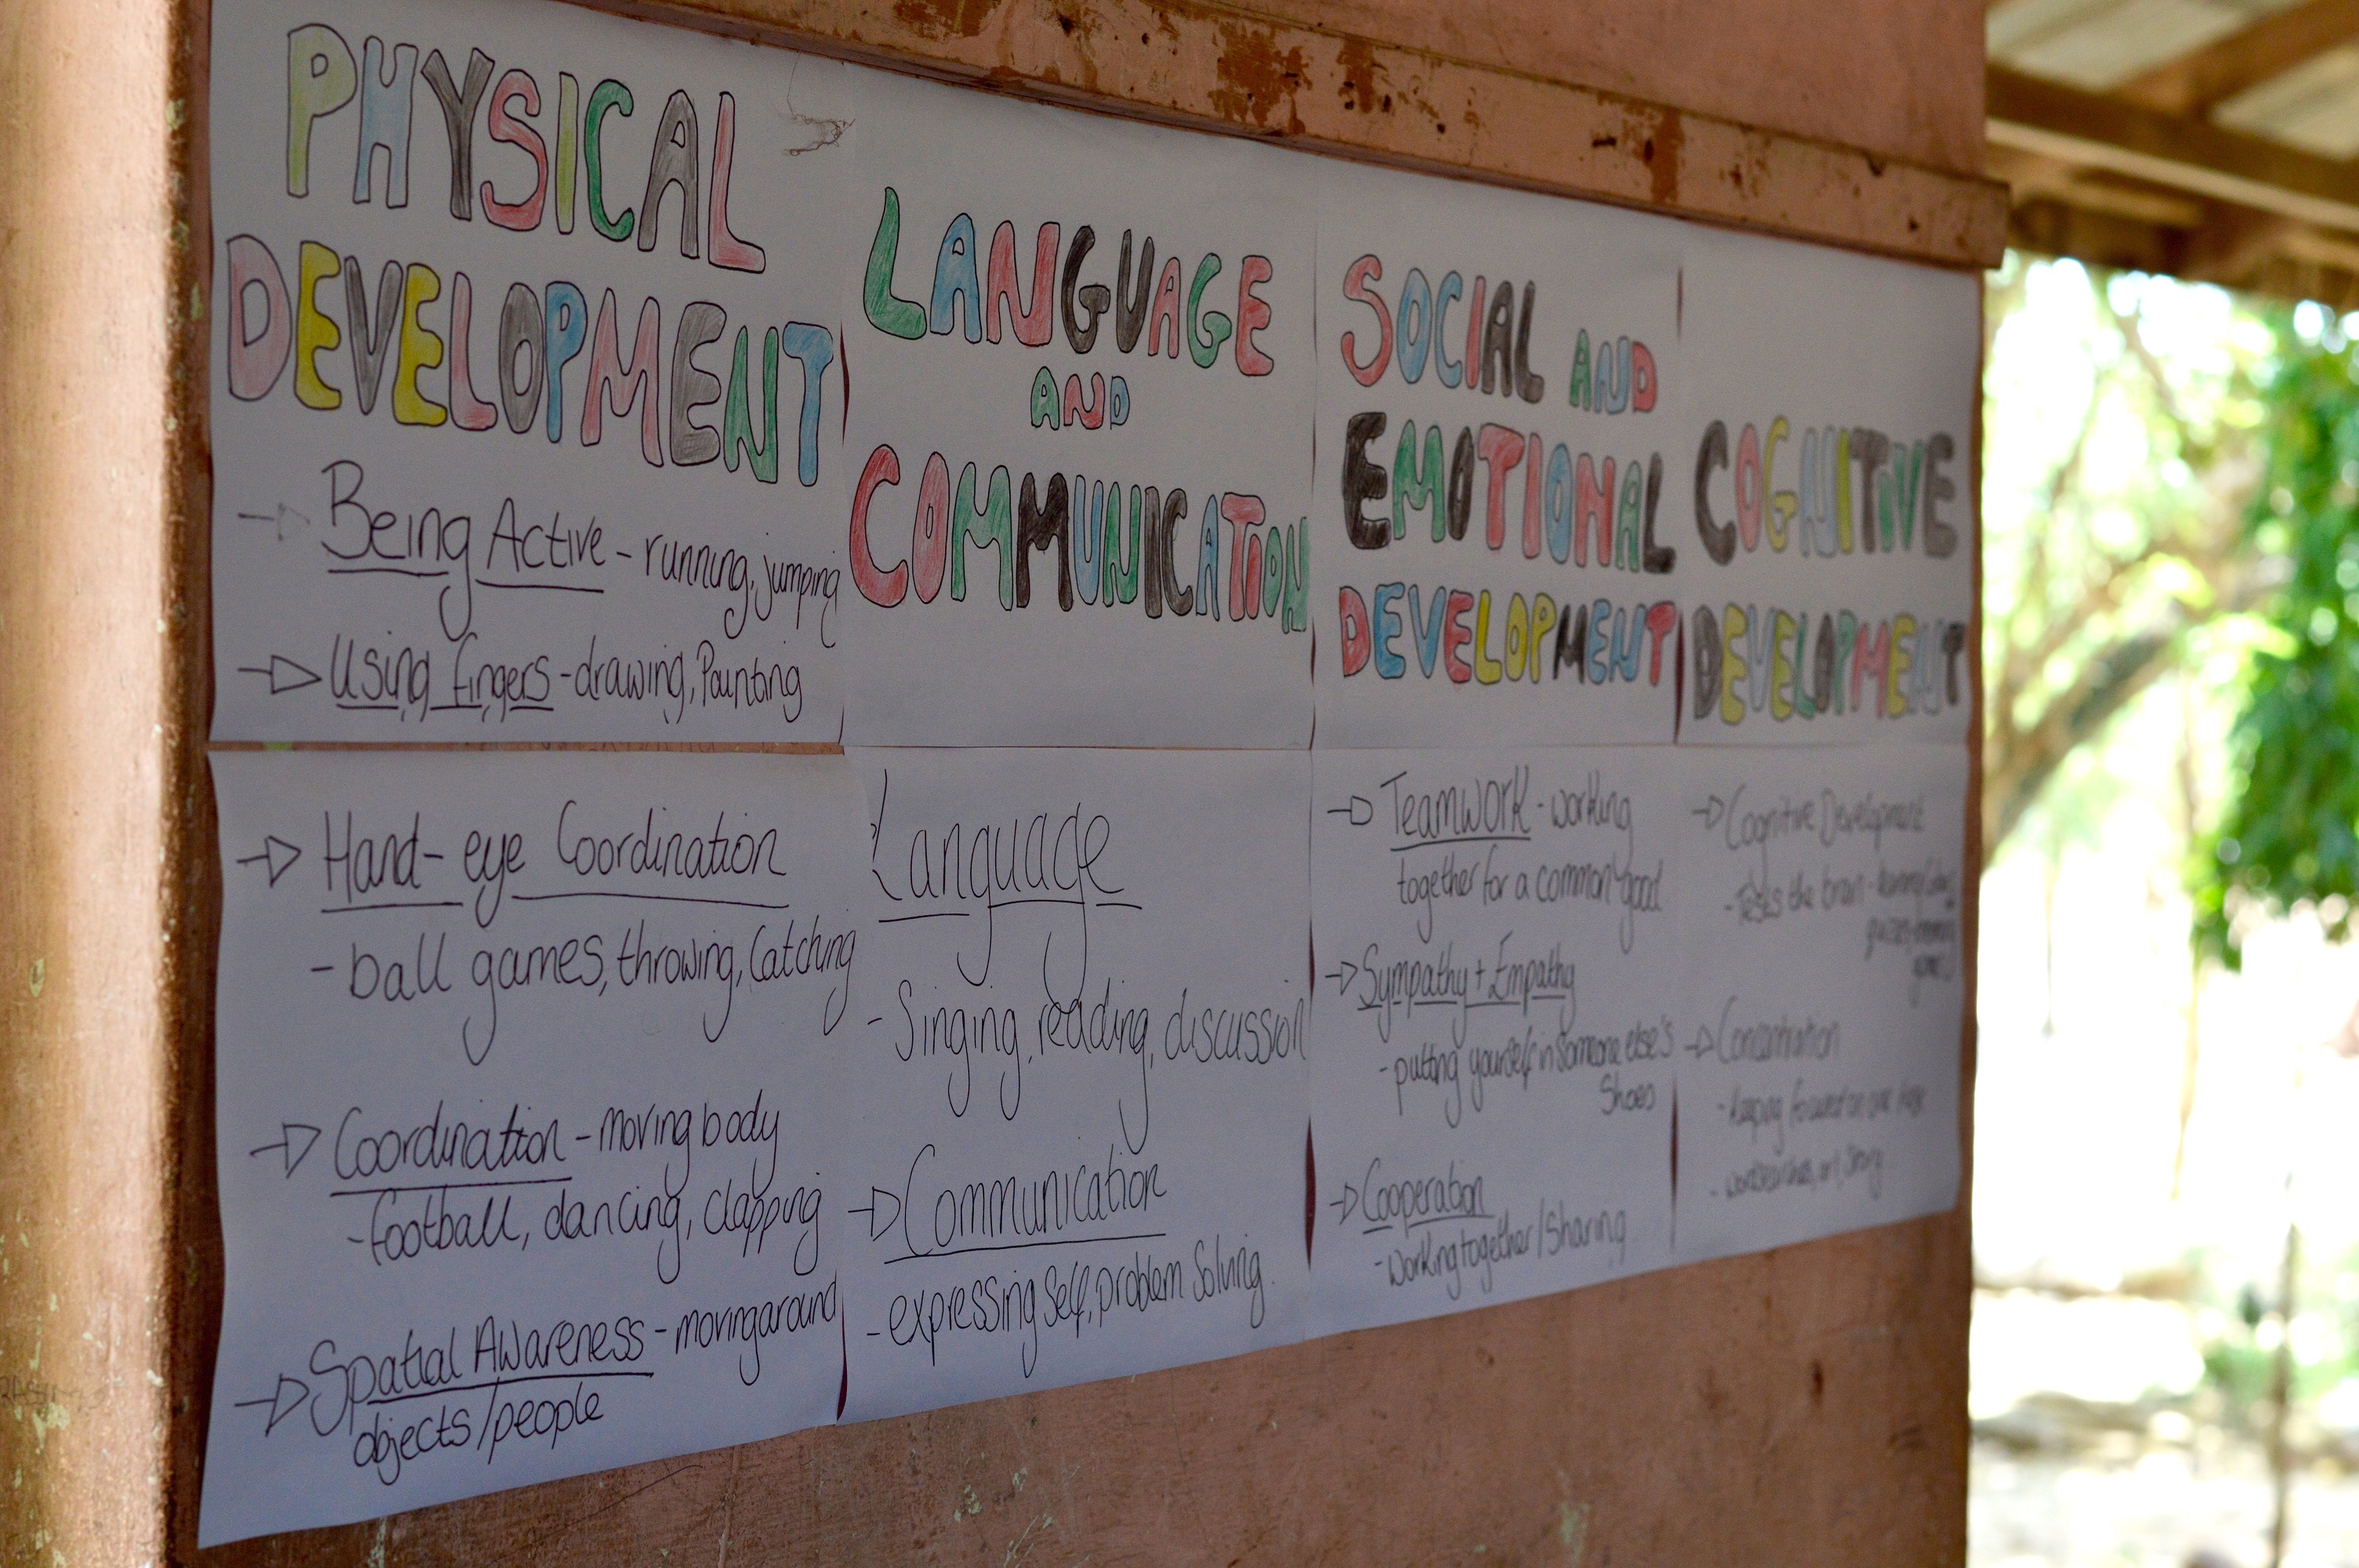 PHYSICAL
DEVELOPMENT
Being Active - running, jumping
Using fingers - drawing, Painting
Hand-eye Coordination
- ball games, throwing, Catching
Coordination - moving body
- football, dancing, clapping
Spatial Awareness - moving around
objects/people
LANGUAGE
AND
COMMUNICATION
Language
- Singing, reading, discussion
Communication
- expressing self, problem Solving.
SOCIAL AND
EMOTIONAL
DEVELOPMENT
Teamwork - working
together for a common good
Sympathy + Empathy
- putting yourself in someone else's
Shoes
Cooperation
- Working together/Sharing
COGNITIVE
DEVELOPMENT
Cognitive Development
- Tests the brain -
Concentration
- Keeping focused on one